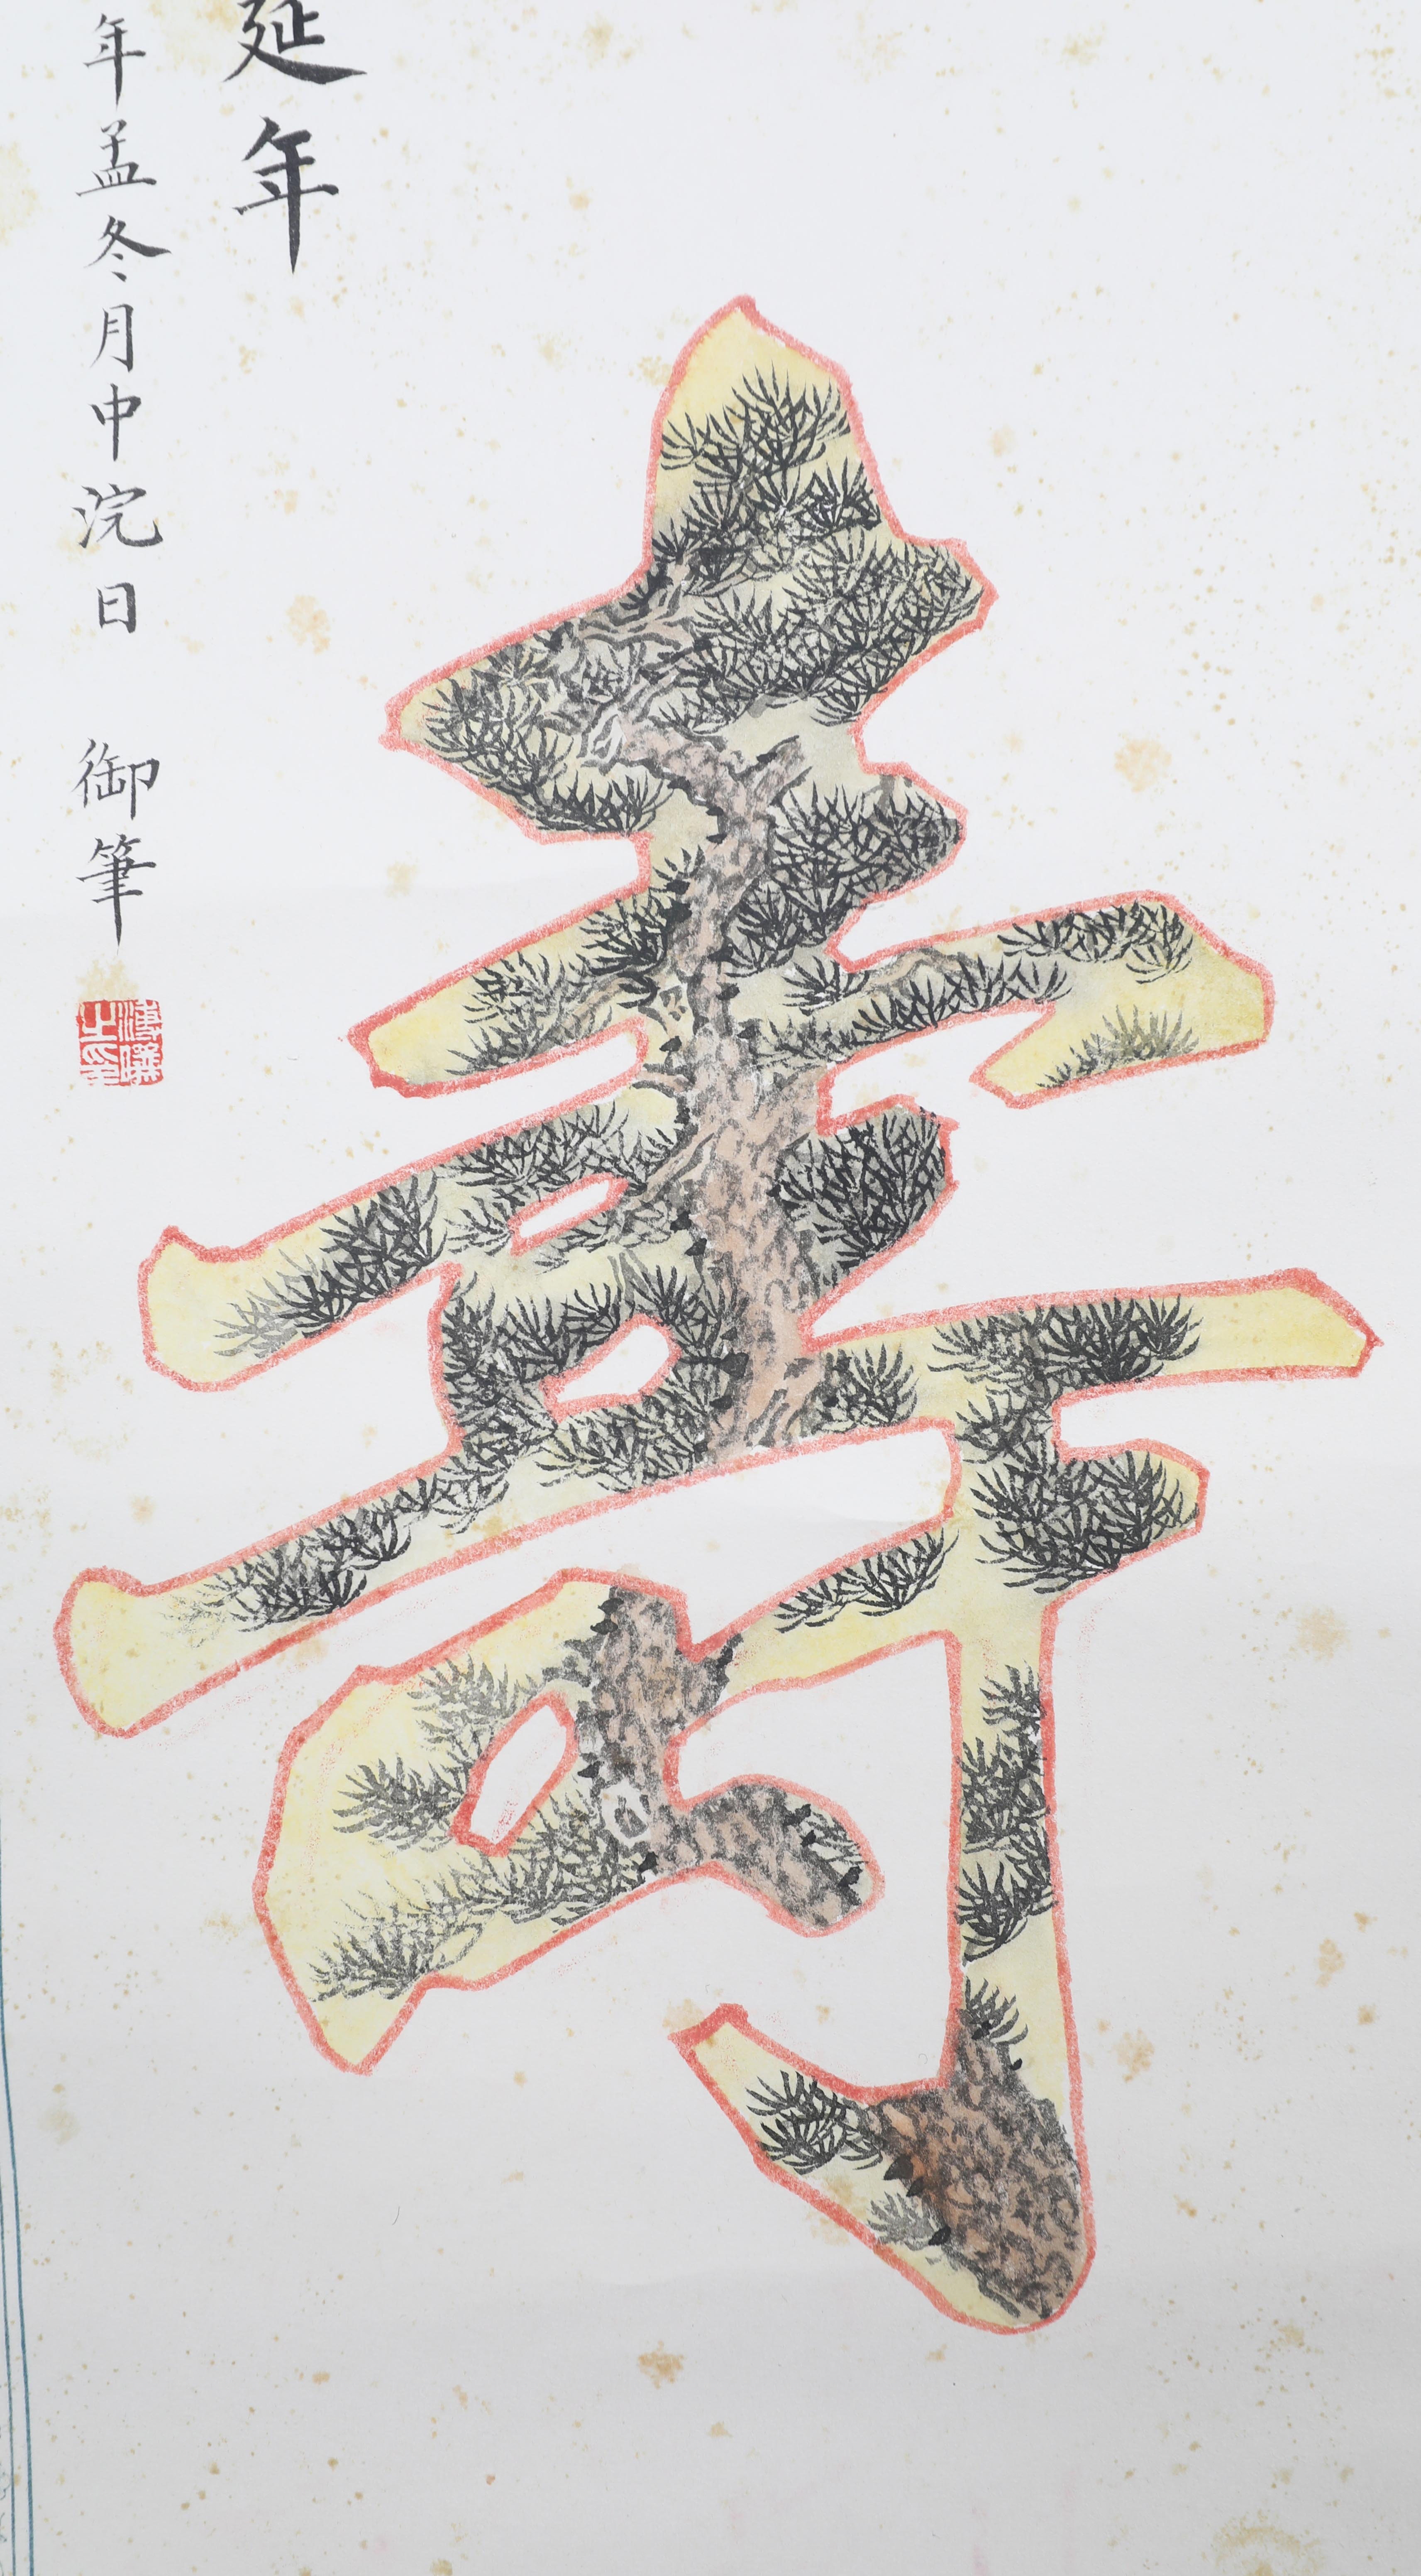 壽
延年
年孟冬月中浣日 御筆
之印